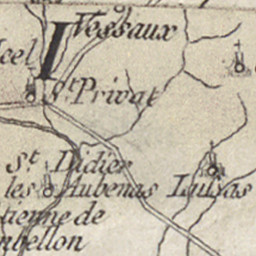 Vessaux
cel
St. Privat
St. Didier
les Aubenas
Lussas
tienne de
nbellon